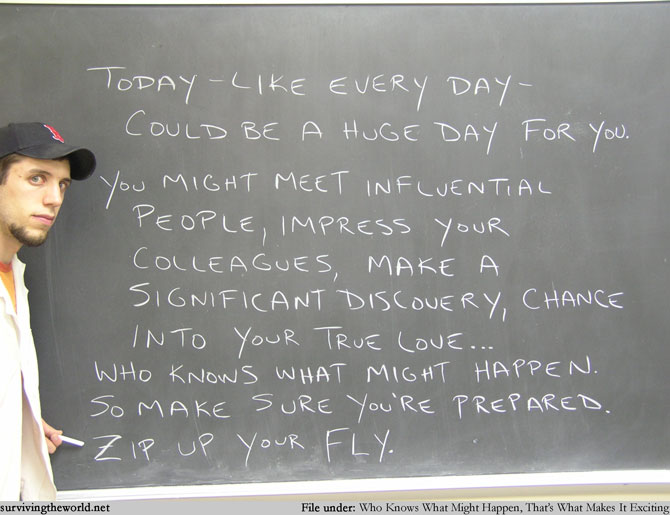 TODAY - LIKE EVERY DAY -
COULD BE A HUGE DAY FOR YOU.
YOU MIGHT MEET INFLUENTIAL
PEOPLE, IMPRESS YOUR
COLLEAGUES, MAKE A
SIGNIFICANT DISCOVERY, CHANCE
INTO YOUR TRUE LOVE...
WHO KNOWS WHAT MIGHT HAPPEN.
SO MAKE SURE YOU'RE PREPARED.
ZIP UP YOUR FLY.
survivingtheworld.net File under: Who Knows What Might Happen, That's What Makes It Exciting